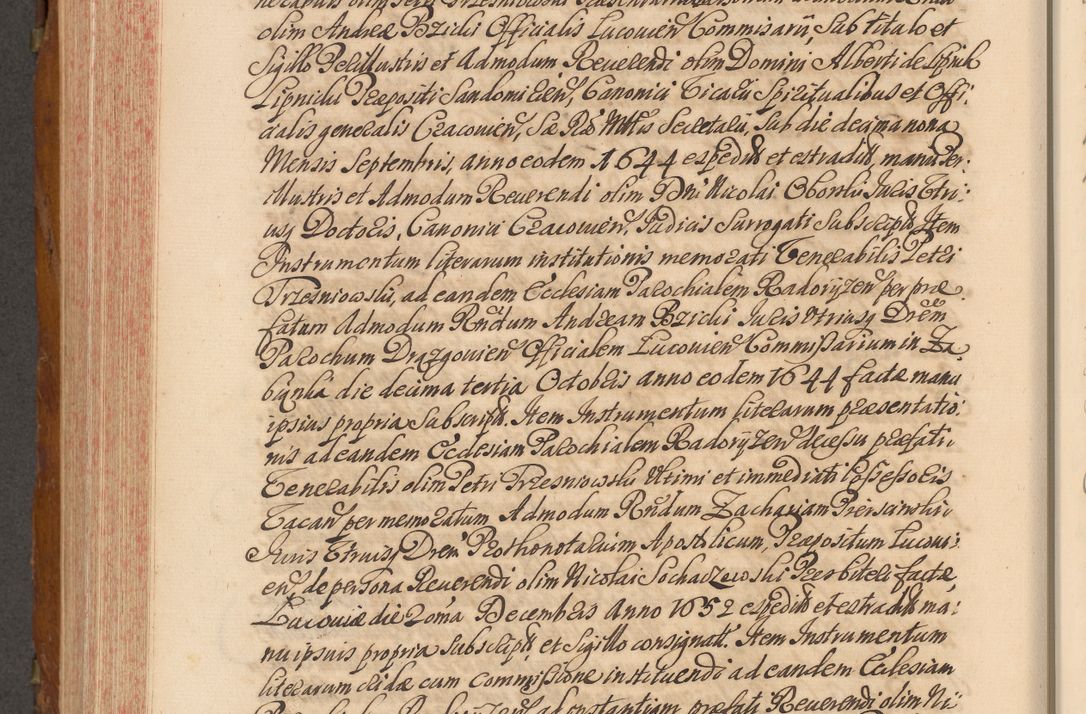 olim Andreæ Bzicki Officialis Lucovien Commisarii, sub titulo et
Sigillo Perillustris et Admodum Reuerendi olim Domini Alberti de Lipnik
Lipnicki Præpositi Sandomirien, Canonici Vicarii Spiritualibus et Offi:
cialis generalis Cracovien, Sæ Ræ Mttis Secretarii, sub die decima nona
Mensis Septembris, anno eodem 1644 espedit et estradit, manu Per:
illustris et Admodum Reuerendi olim Dni Nicolai Oborski Juris Utri:
usq Doctoris, Canonici Cracovien, Judicis Surrogati Subscript Item
Instrumentum literarum institutionis memorati Venerabilis Petri
Trzesniowski, ad eandem Ecclesiam Parochialem Radoryzen per præ
fatum Admodum Rndum Andream Bzicki Juris Utriusq Drem
Parochum Drazgovien Officialem Lucovien Commissarium in Za
bianka die decima tertia Octobris anno eodem 1644 factæ manu
ipsius propria Subscript. Item Instrumentum literarum præsentatio:
nis ad eandem Ecclesiam Parochialem Radoryzen decessu præfati
Venerabilis olim Petri Trzesniowski Ultimi et immediati Possessoris
Vacan per memoratum Admodum Rndum Zachariam
Juris Utruisq Drem Prothonotarium Apostolicum, Præpositum Lucovi:
en, de persona Reuerendi olim Nicolai Sochaczewski Præsbiteri factæ,
Lucoviæ die 2oma Decembris Anno 1652 espedit et estradit ma:
nu ipsius propria Subscript, et Sigillo consignatt. Item Instrumentum
literarum cridæ cum Commissione instituendi ad eandem Ecclesiam
ad instantiam præfati Reuerendi olim Ni